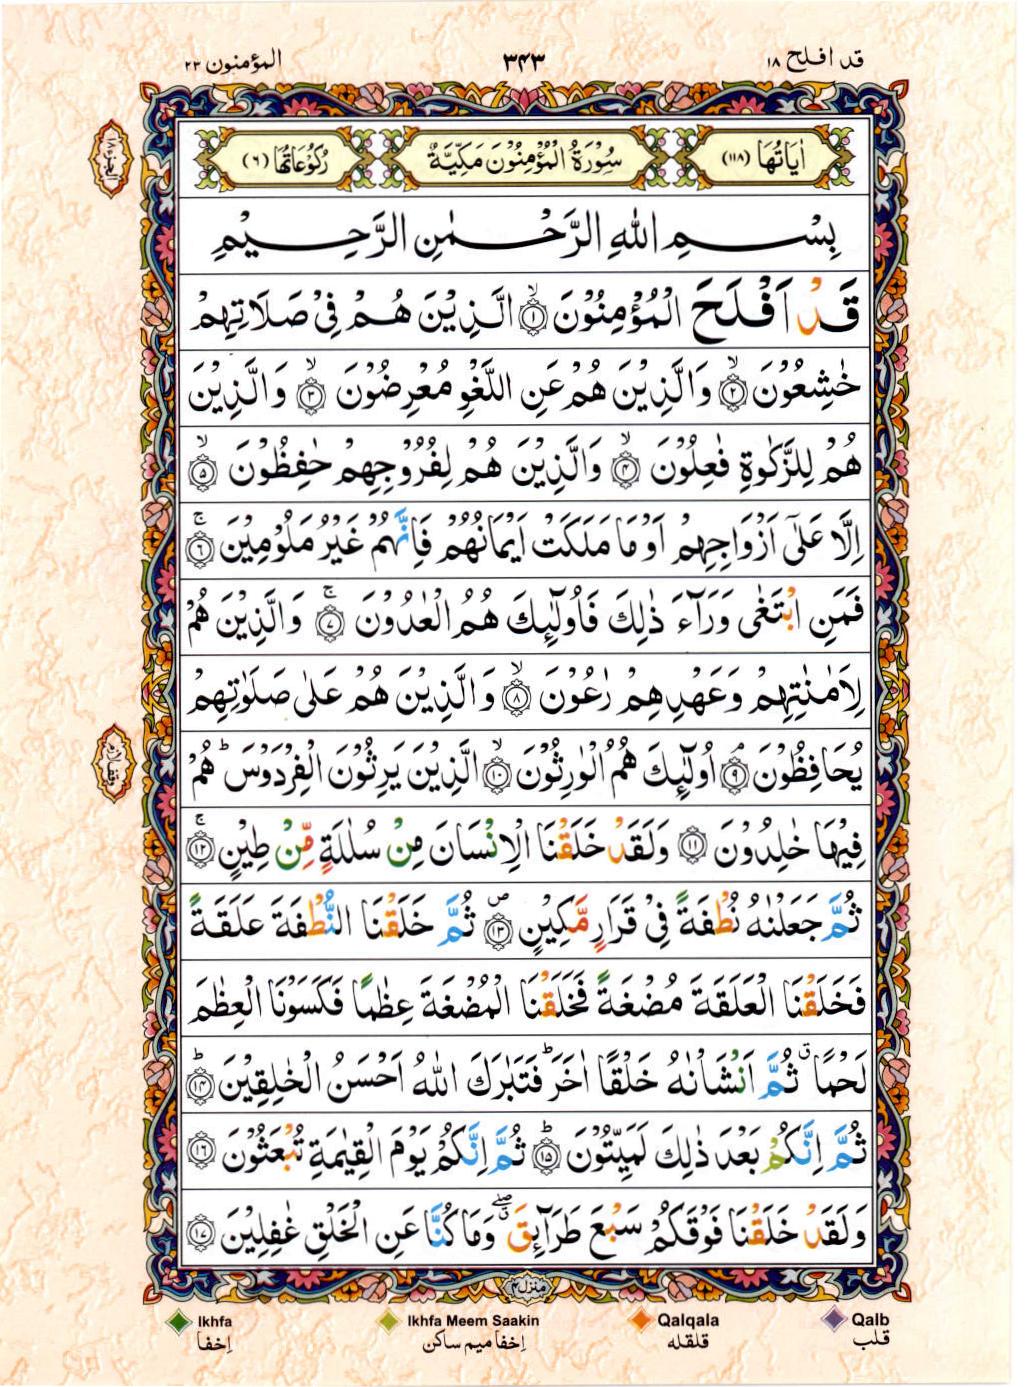 قد افلح ١٨
٣٤٣
المؤمنون ٢٣
اٰيَاتُهَا (١١٨)
سُوْرَةُ الْمُؤْمِنُوْنَ مَكِّيَّةٌ
رُكُوْعَاتُهَا (٦)
الجزء ١٨
بِسْمِ اللهِ الرَّحْمٰنِ الرَّحِيْمِ
قَدْ اَفْلَحَ الْمُؤْمِنُوْنَ ۙ﴿١﴾ الَّذِيْنَ هُمْ فِيْ صَلَاتِهِمْ
خٰشِعُوْنَ ۙ﴿٢﴾ وَالَّذِيْنَ هُمْ عَنِ اللَّغْوِ مُعْرِضُوْنَ ۙ﴿٣﴾ وَالَّذِيْنَ
هُمْ لِلزَّكٰوةِ فٰعِلُوْنَ ۙ﴿٤﴾ وَالَّذِيْنَ هُمْ لِفُرُوْجِهِمْ حٰفِظُوْنَ ۙ﴿٥﴾
اِلَّا عَلٰٓى اَزْوَاجِهِمْ اَوْ مَا مَلَكَتْ اَيْمَانُهُمْ فَاِنَّهُمْ غَيْرُ مَلُوْمِيْنَ ۚ﴿٦﴾
فَمَنِ ابْتَغٰى وَرَآءَ ذٰلِكَ فَاُولٰٓئِكَ هُمُ الْعٰدُوْنَ ۚ﴿٧﴾ وَالَّذِيْنَ هُمْ
لِاَمٰنٰتِهِمْ وَعَهْدِهِمْ رٰعُوْنَ ۙ﴿٨﴾ وَالَّذِيْنَ هُمْ عَلٰى صَلَوٰتِهِمْ
يُحَافِظُوْنَ ۘ﴿٩﴾ اُولٰٓئِكَ هُمُ الْوٰرِثُوْنَ ۙ﴿١٠﴾ الَّذِيْنَ يَرِثُوْنَ الْفِرْدَوْسَ ؕ هُمْ
فِيْهَا خٰلِدُوْنَ ﴿١١﴾ وَلَقَدْ خَلَقْنَا الْاِنْسَانَ مِنْ سُلٰلَةٍ مِّنْ طِيْنٍ ۚ﴿١٢﴾
ثُمَّ جَعَلْنٰهُ نُطْفَةً فِيْ قَرَارٍ مَّكِيْنٍ ۪﴿١٣﴾ ثُمَّ خَلَقْنَا النُّطْفَةَ عَلَقَةً
فَخَلَقْنَا الْعَلَقَةَ مُضْغَةً فَخَلَقْنَا الْمُضْغَةَ عِظٰمًا فَكَسَوْنَا الْعِظٰمَ
لَحْمًا ۫ ثُمَّ اَنْشَاْنٰهُ خَلْقًا اٰخَرَ ؕ فَتَبٰرَكَ اللهُ اَحْسَنُ الْخٰلِقِيْنَ ؕ﴿١٤﴾
ثُمَّ اِنَّكُمْ بَعْدَ ذٰلِكَ لَمَيِّتُوْنَ ؕ﴿١٥﴾ ثُمَّ اِنَّكُمْ يَوْمَ الْقِيٰمَةِ تُبْعَثُوْنَ ﴿١٦﴾
وَلَقَدْ خَلَقْنَا فَوْقَكُمْ سَبْعَ طَرَآئِقَ ۖ وَمَا كُنَّا عَنِ الْخَلْقِ غٰفِلِيْنَ ﴿١٧﴾
منزل ٤
Ikhfa
اِخفا
Ikhfa Meem Saakin
اِخفا ميم ساكن
Qalqala
قلقله
Qalb
قلب